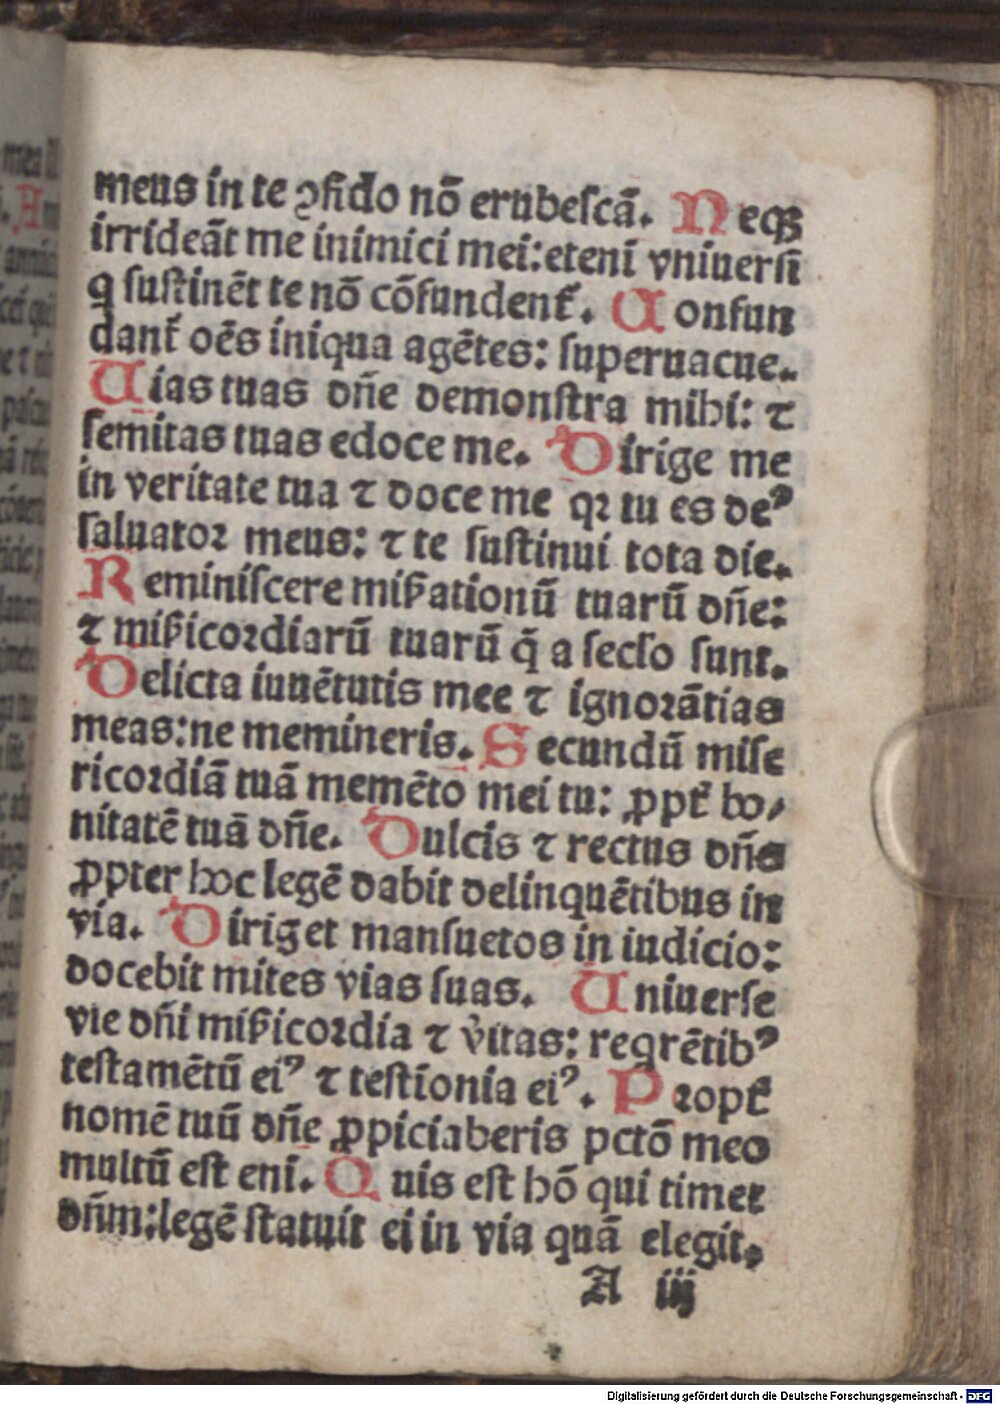 meus in te ꝯfido nō erubeſcā. Neqꝫ
irrideāt me inimici mei: etenī vniuerſi
q ſuſtinēt te nō cōfundent᷑. Confun
dant᷑ oēs iniqua agētes: ſuperuacue.
Uias tuas dn̄e demonſtra mihi: ⁊
ſemitas tuas edoce me. Dirige me
in veritate tua ⁊ doce me qꝛ tu es deꝰ
ſaluatoꝛ meus: ⁊ te ſuſtinui tota die.
Reminiſcere miſ̄ationū tuarū dn̄e:
⁊ miſ̄icoꝛdiarū tuarū q̄ a ſecl̓o ſunt.
Delicta iuuētutis mee ⁊ ignoꝛātias
meas: ne memineris. Secundū miſe
ricoꝛdiā tuā memēto mei tu: ꝓpt᷑ bo⸗
nitatē tuā dn̄e. Dulcis ⁊ rectus dn̄s
ꝓpter hoc legē dabit delinquētibus in
via. Diriget manſuetos in iudicio:
docebit mites vias ſuas. Uniuerſe
vie dn̄i miſ̄icoꝛdia ⁊ v̓itas: reqrētibꝰ
teſtamētū eiꝰ ⁊ teſtīonia eiꝰ. Pꝛopt᷑
nomē tuū dn̄e ꝓpiciaberis pctō meo
multū eſt enī. Quis eſt hō qui timet
dn̄m: legē ſtatuit ei in via quā elegit.
A iij
mea
Digitalisierung gefördert durch die Deutsche Forschungsgemeinschaft - DFG